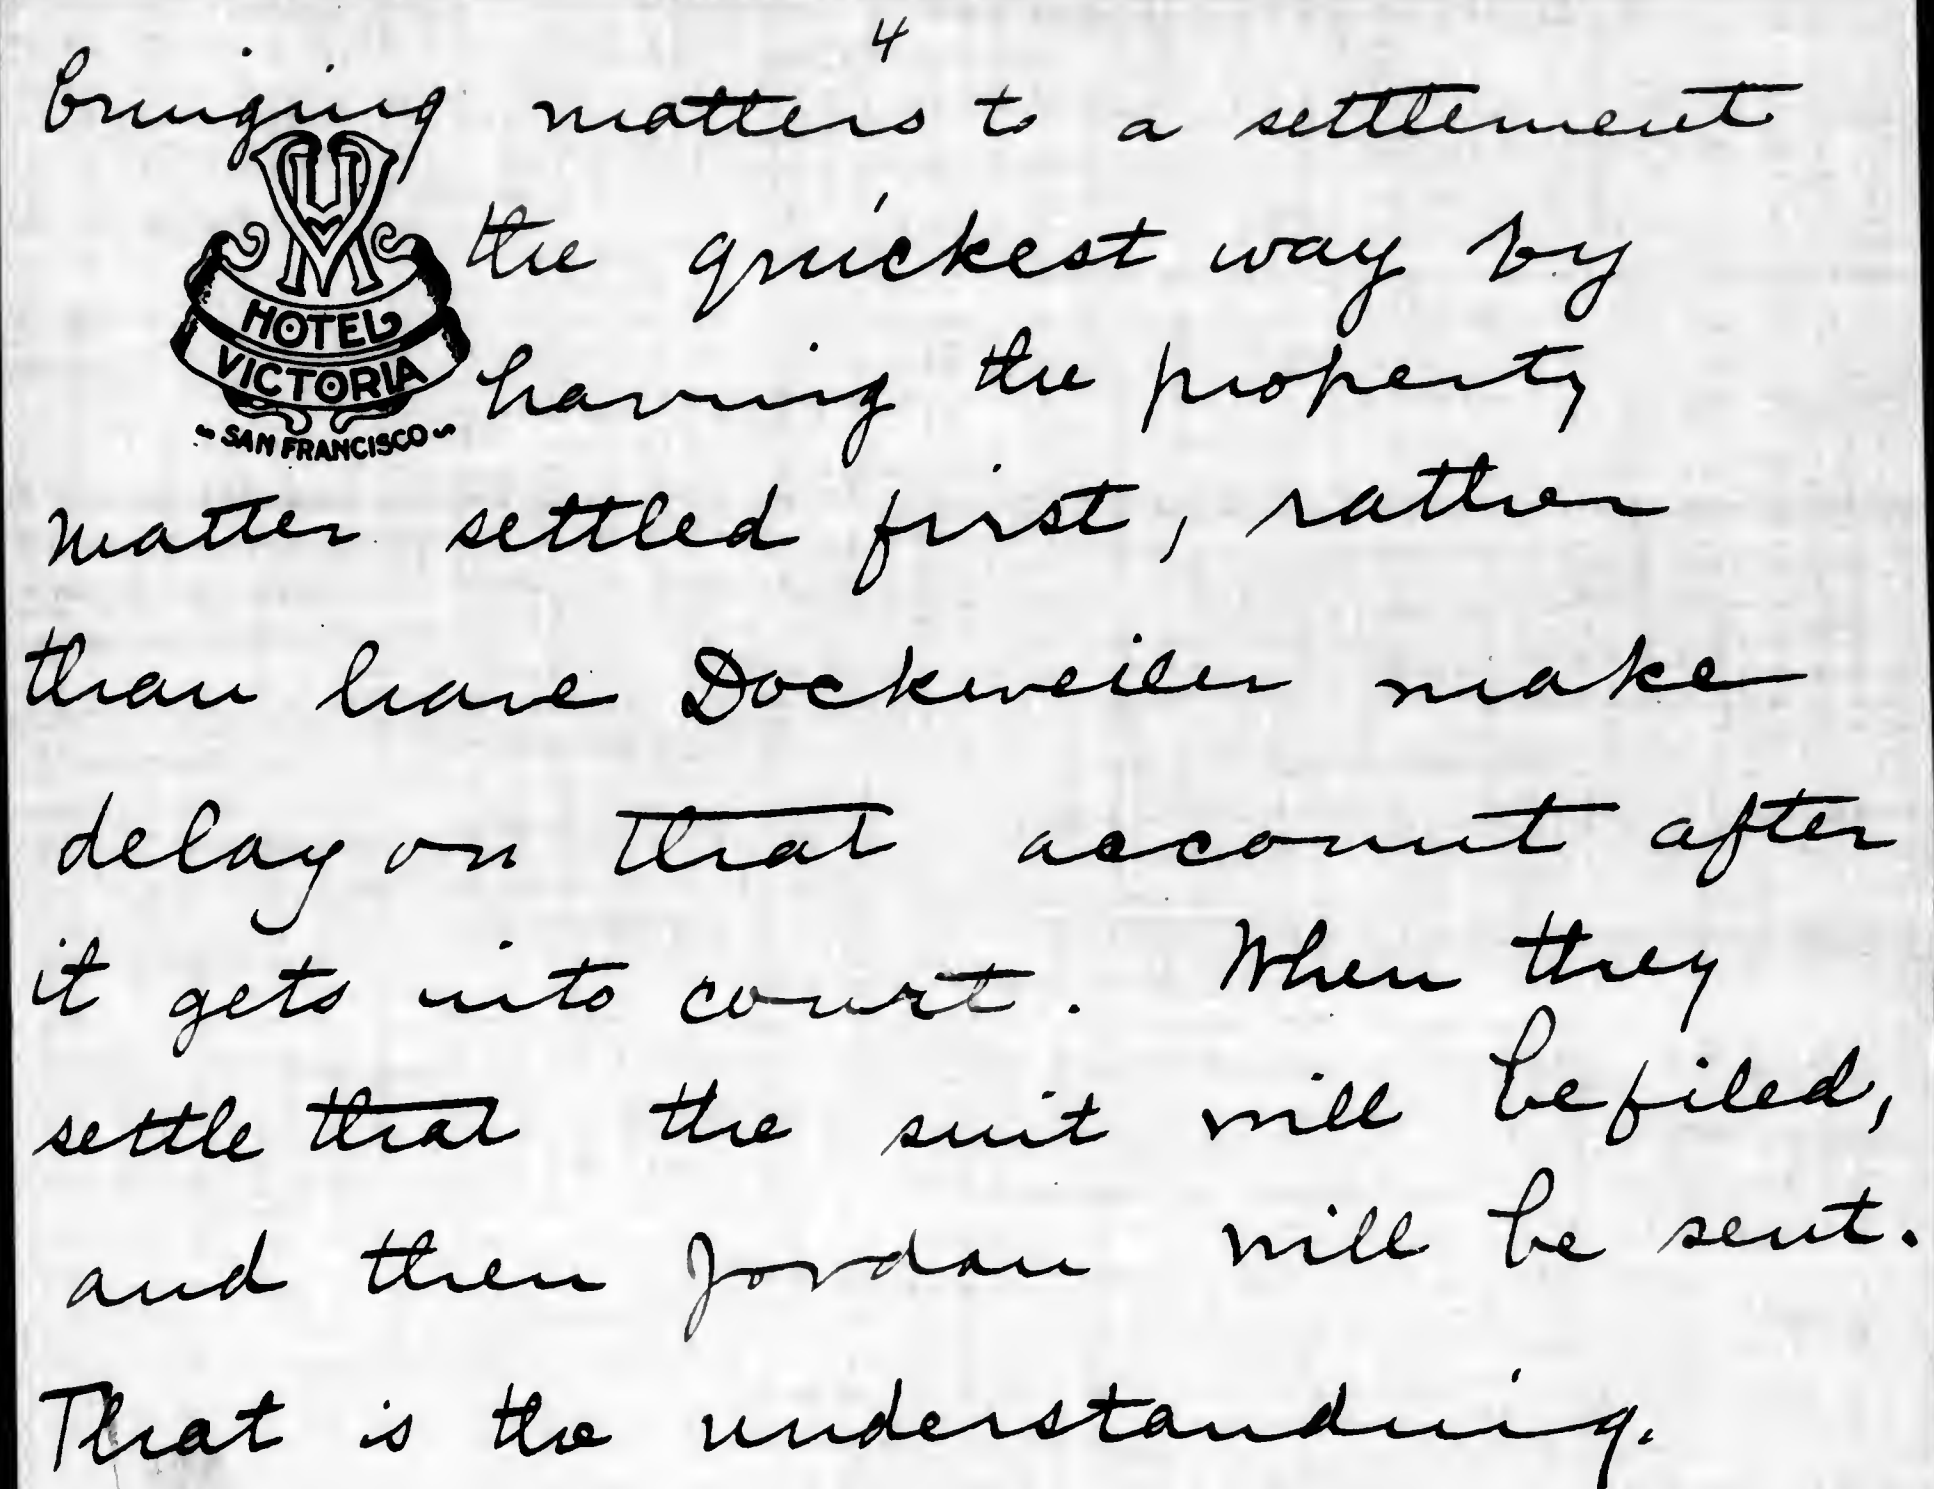 4
bringing matters to a settlement
the quickest way by
HOTEL
VICTORIA
SAN FRANCISCO
having the property
matter settled first, rather
than have Dockweiler make
delay on that account after
it gets into court. When they
settle that the suit will be filed,
and then Jordan will be sent.
That is the understanding.